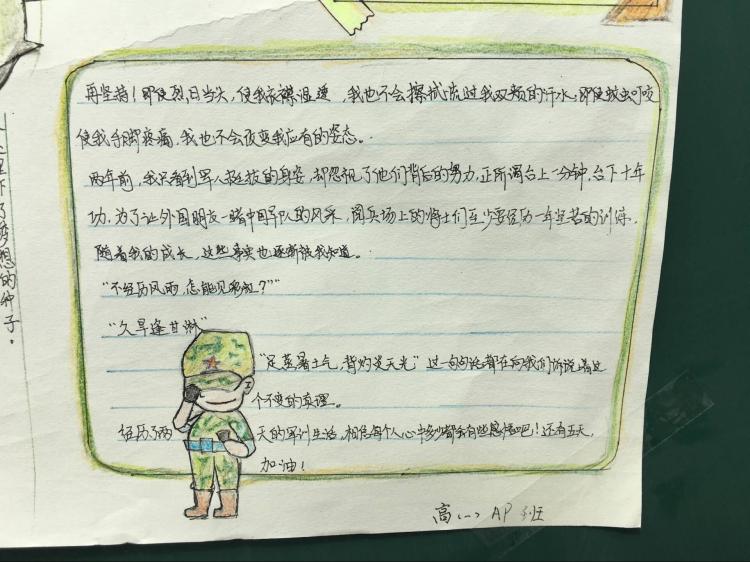 再坚持！即使烈日当头，使我衣襟湿透，我也不会擦拭流过我双颊的汗水；即使蚊虫叮咬
使我手脚疼痛，我也不会改变我应有的姿态。
两年前，我只看到军人挺拔的身姿，却忽视了他们背后的努力，正所谓台上一分钟，台下十年
功，为了让外国朋友一睹中国军队的风采，阅兵场上的将士们至少要经历一年坚苦的训练，
随着我的成长，这些事实也逐渐被我知道。
“不经历风雨，怎能见彩虹？”
“久旱逢甘淋”
“足蒸暑土气，背灼炎天光”这一句句话都在向我们诉说着这
个不变的真理。
经历了两天的军训生活，相信每个人心中多少都会有些感悟吧！还有五天，
加油！
高(一) AP班
里下了梦想的种子。